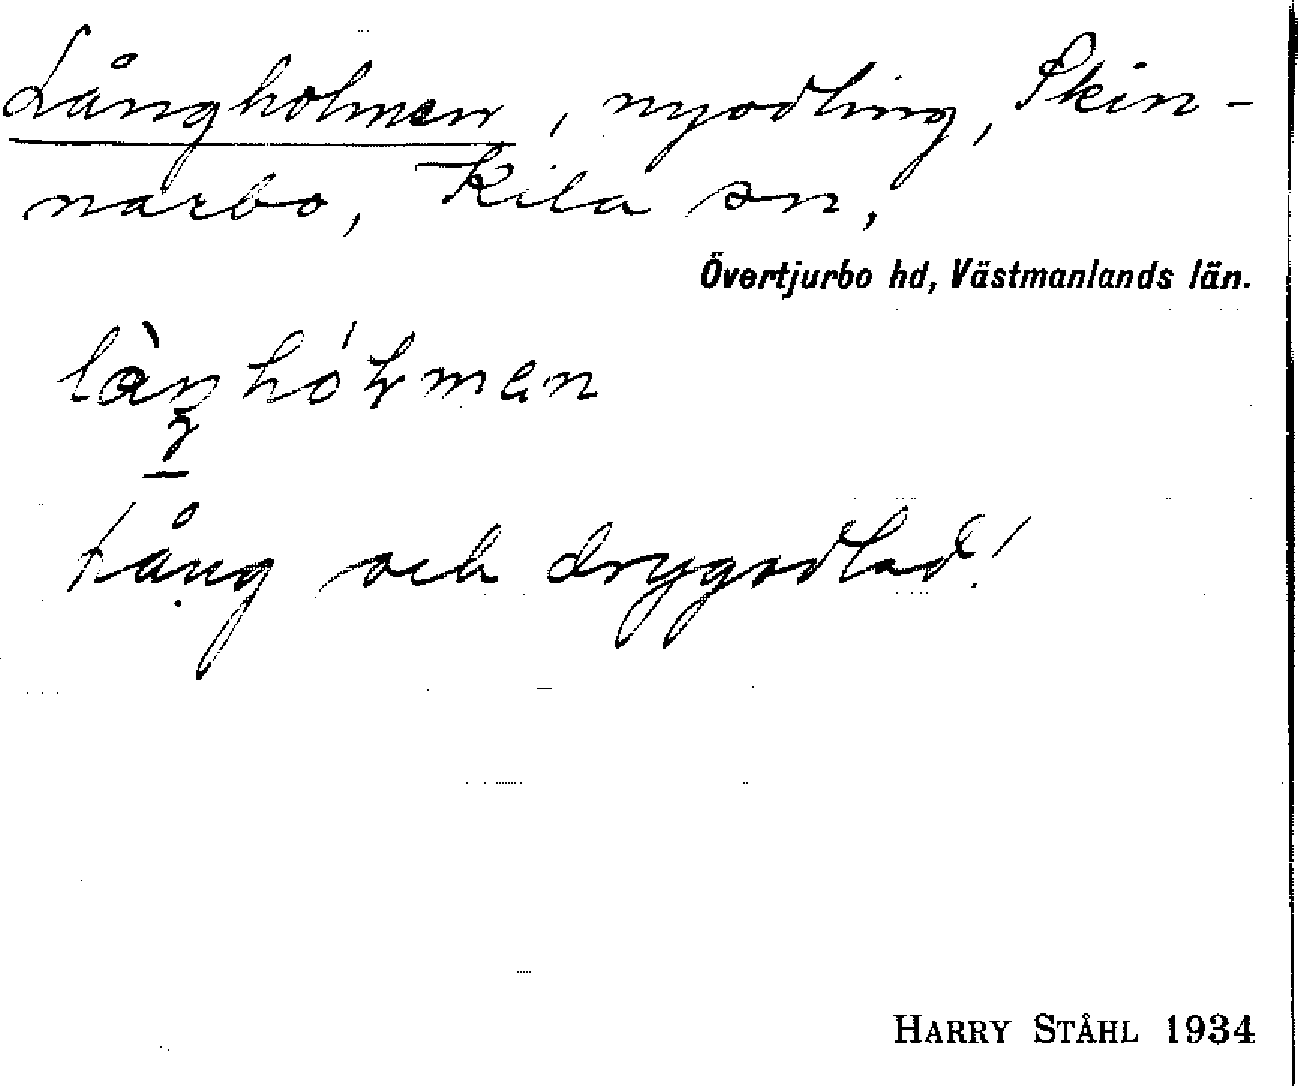 Långholmen, nyodling, Skin-
narbo, Kila sn,
Övertjurbo hd, Västmanlands län.
Lång och drygodlad!
HARRY STÅHL 1934